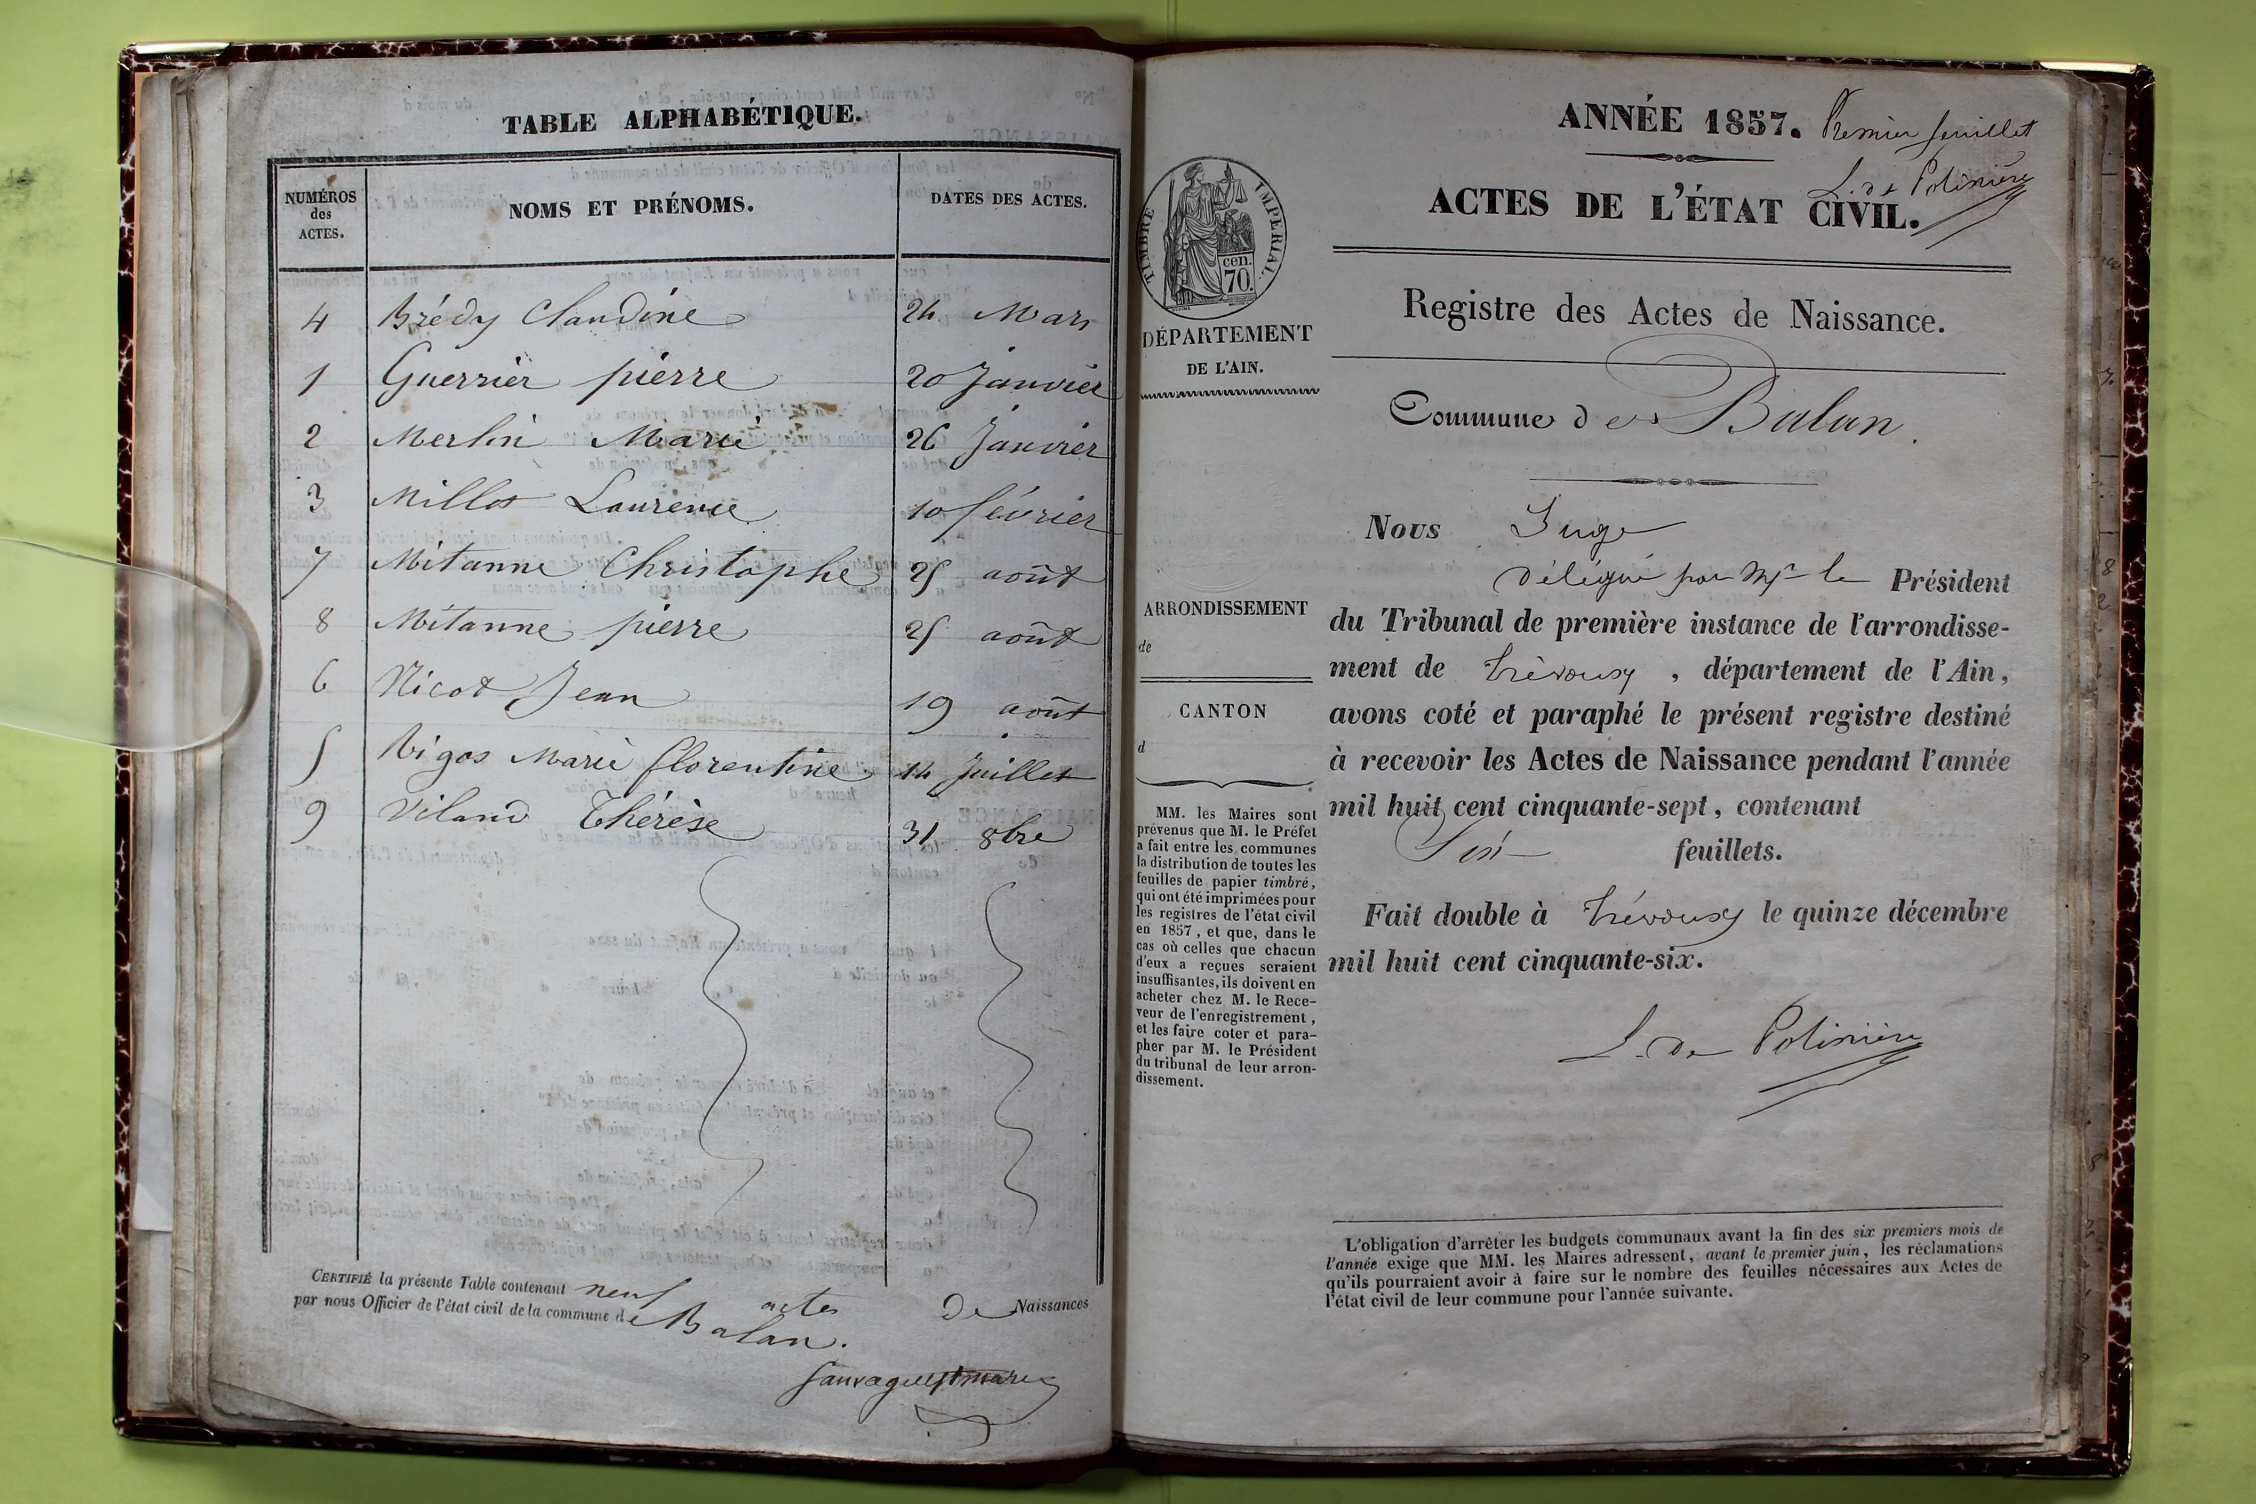 TABLE ALPHABÉTIQUE.
NUMÉROS des ACTES.
NOMS ET PRÉNOMS.
DATES DES ACTES.
4 Brédy Claudine 24 Mars
1 Guerrier pierre 20 Janvier
2 Merlin Marie 26 Janvier
3 Millot Laurence 10 février
7 Mitanne Christophe 25 août
8 Mitanne pierre 25 août
6 Nicot Jean 19 août
5 Vigos Marie florentine 14 Juillet
9 Viland Thérèse 31 8bre
CERTIFIÉ la présente Table contenant neuf actes de Naissances
par nous Officier de l'état civil de la commune de Balan.
ANNÉE 1857. Premier feuillet
L. de Polinière
ACTES DE L'ÉTAT CIVIL.
TIMBRE IMPERIAL.
cen.
70.
Registre des Actes de Naissance.
DÉPARTEMENT
DE L'AIN.
Commune de Balan.
Nous Juge
délégué par Mr le Président
du Tribunal de première instance de l'arrondisse-
ment de Trévoux, département de l'Ain,
avons coté et paraphé le présent registre destiné
à recevoir les Actes de Naissance pendant l'année
mil huit cent cinquante-sept, contenant
Six feuillets.
Fait double à Trévoux le quinze décembre
mil huit cent cinquante-six.
L. de Polinière
ARRONDISSEMENT
de
CANTON
d
MM. les Maires sont
prévenus que M. le Préfet
a fait entre les communes
la distribution de toutes les
feuilles de papier timbré,
qui ont été imprimées pour
les registres de l'état civil
en 1857, et que, dans le
cas où celles que chacun
d'eux a reçues seraient
insuffisantes, ils doivent en
acheter chez M. le Rece-
veur de l'enregistrement,
et les faire coter et para-
pher par M. le Président
du tribunal de leur arron-
dissement.
L'obligation d'arrêter les budgets communaux avant la fin des six premiers mois de
l'année exige que MM. les Maires adressent, avant le premier juin, les réclamations
qu'ils pourraient avoir à faire sur le nombre des feuilles nécessaires aux Actes de
l'état civil de leur commune pour l'année suivante.